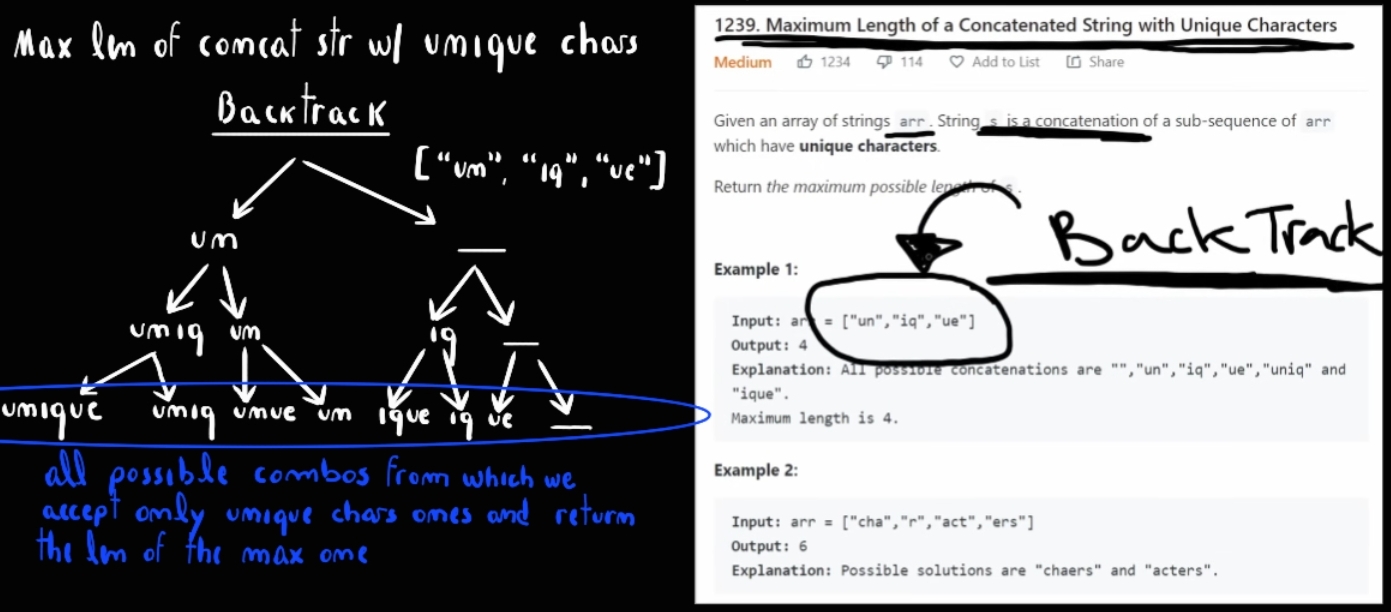 Max len of concat str w/ unique chars
BackTrack
["un", "iq", "ue"]
un __
uniq un iq __
unique uniq unue un ique iq ue __
all possible combos from which we
accept only unique chars ones and return
the len of the max one
1239. Maximum Length of a Concatenated String with Unique Characters
Medium 1234 114 Add to List Share
Given an array of strings arr. String s is a concatenation of a sub-sequence of arr
which have unique characters.
Return the maximum possible length of s.
BackTrack
Example 1:
Input: arr = ["un","iq","ue"]
Output: 4
Explanation: All possible concatenations are "","un","iq","ue","uniq" and
"ique".
Maximum length is 4.
Example 2:
Input: arr = ["cha","r","act","ers"]
Output: 6
Explanation: Possible solutions are "chaers" and "acters".